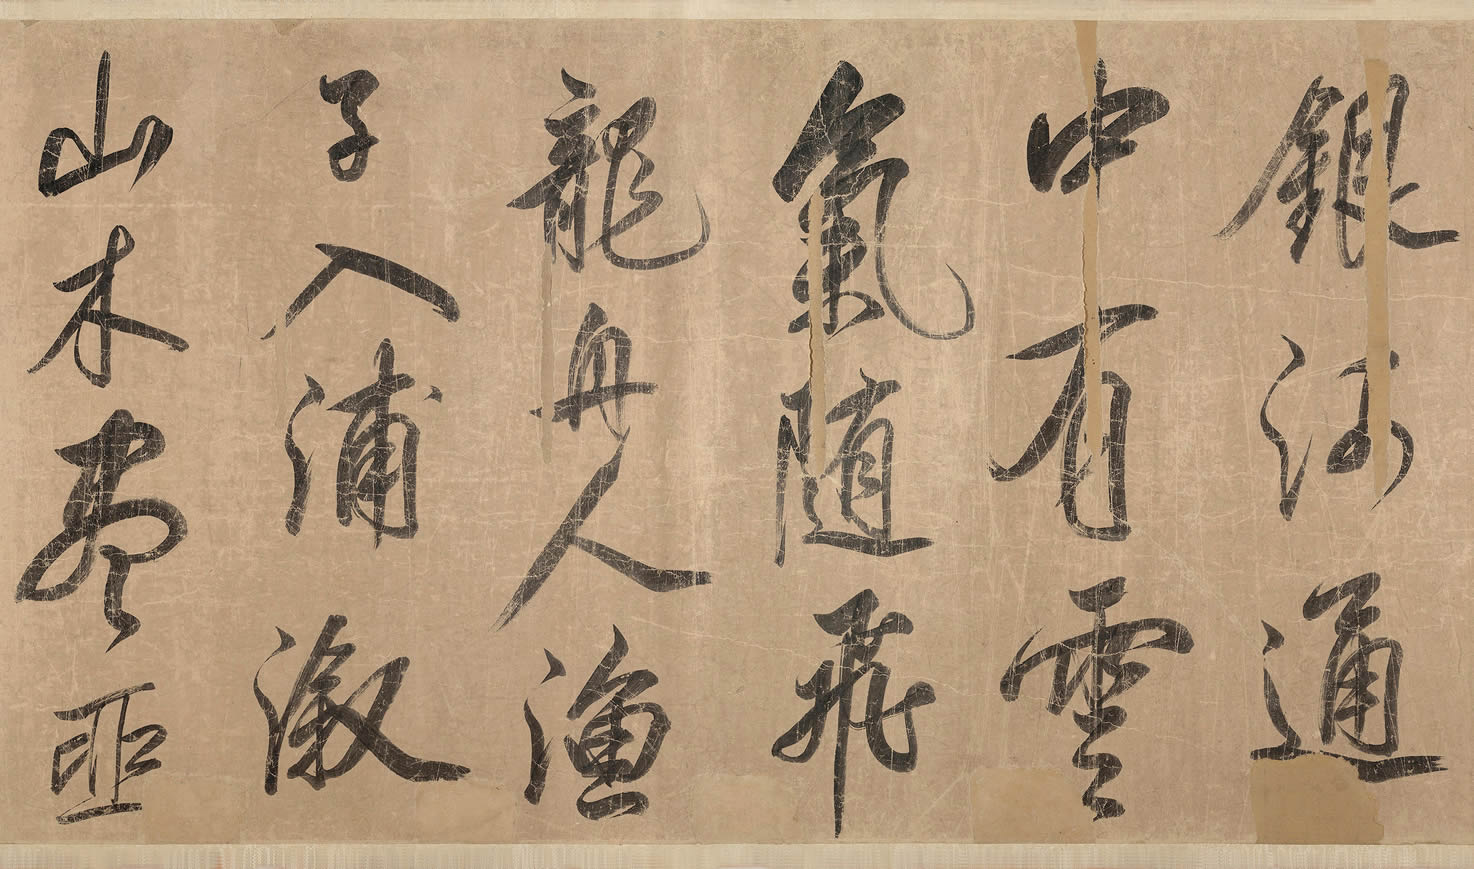 銀河通
中有雲
氣随飛
龍舟人漁
子入浦漵
山木盡亞